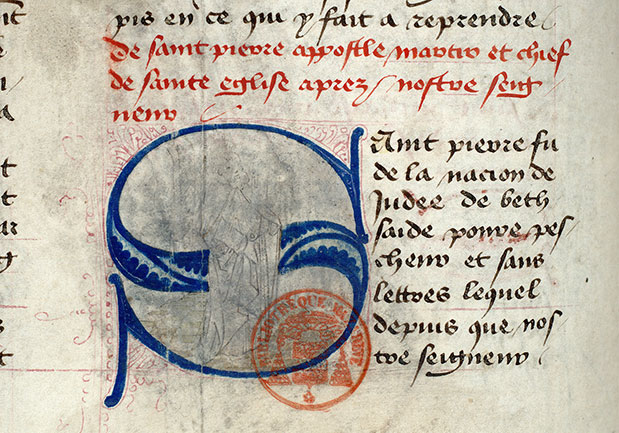 pis en ce qui y fait a reprendre
de saint pierre appostle martir et chief
de sainte eglise aprez nostre seig
neur
Saint pierre fu
de la nacion de
Judee de beth
saide povre pes
cheur et sans
lettres lequel
depuis que nos
tre seigneur